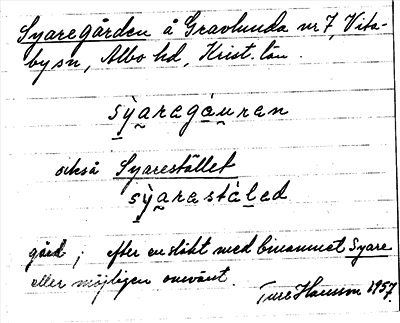 Syaregården å Gravlunda nr 7, Vita-
by sn, Albo hd, Krist. län.
sỳaragáuran
också Syarestället
sỳarastálad
gård; efter en släkt med binamnet Syare
eller möjligen omvänt.
Ture Hansson 1957